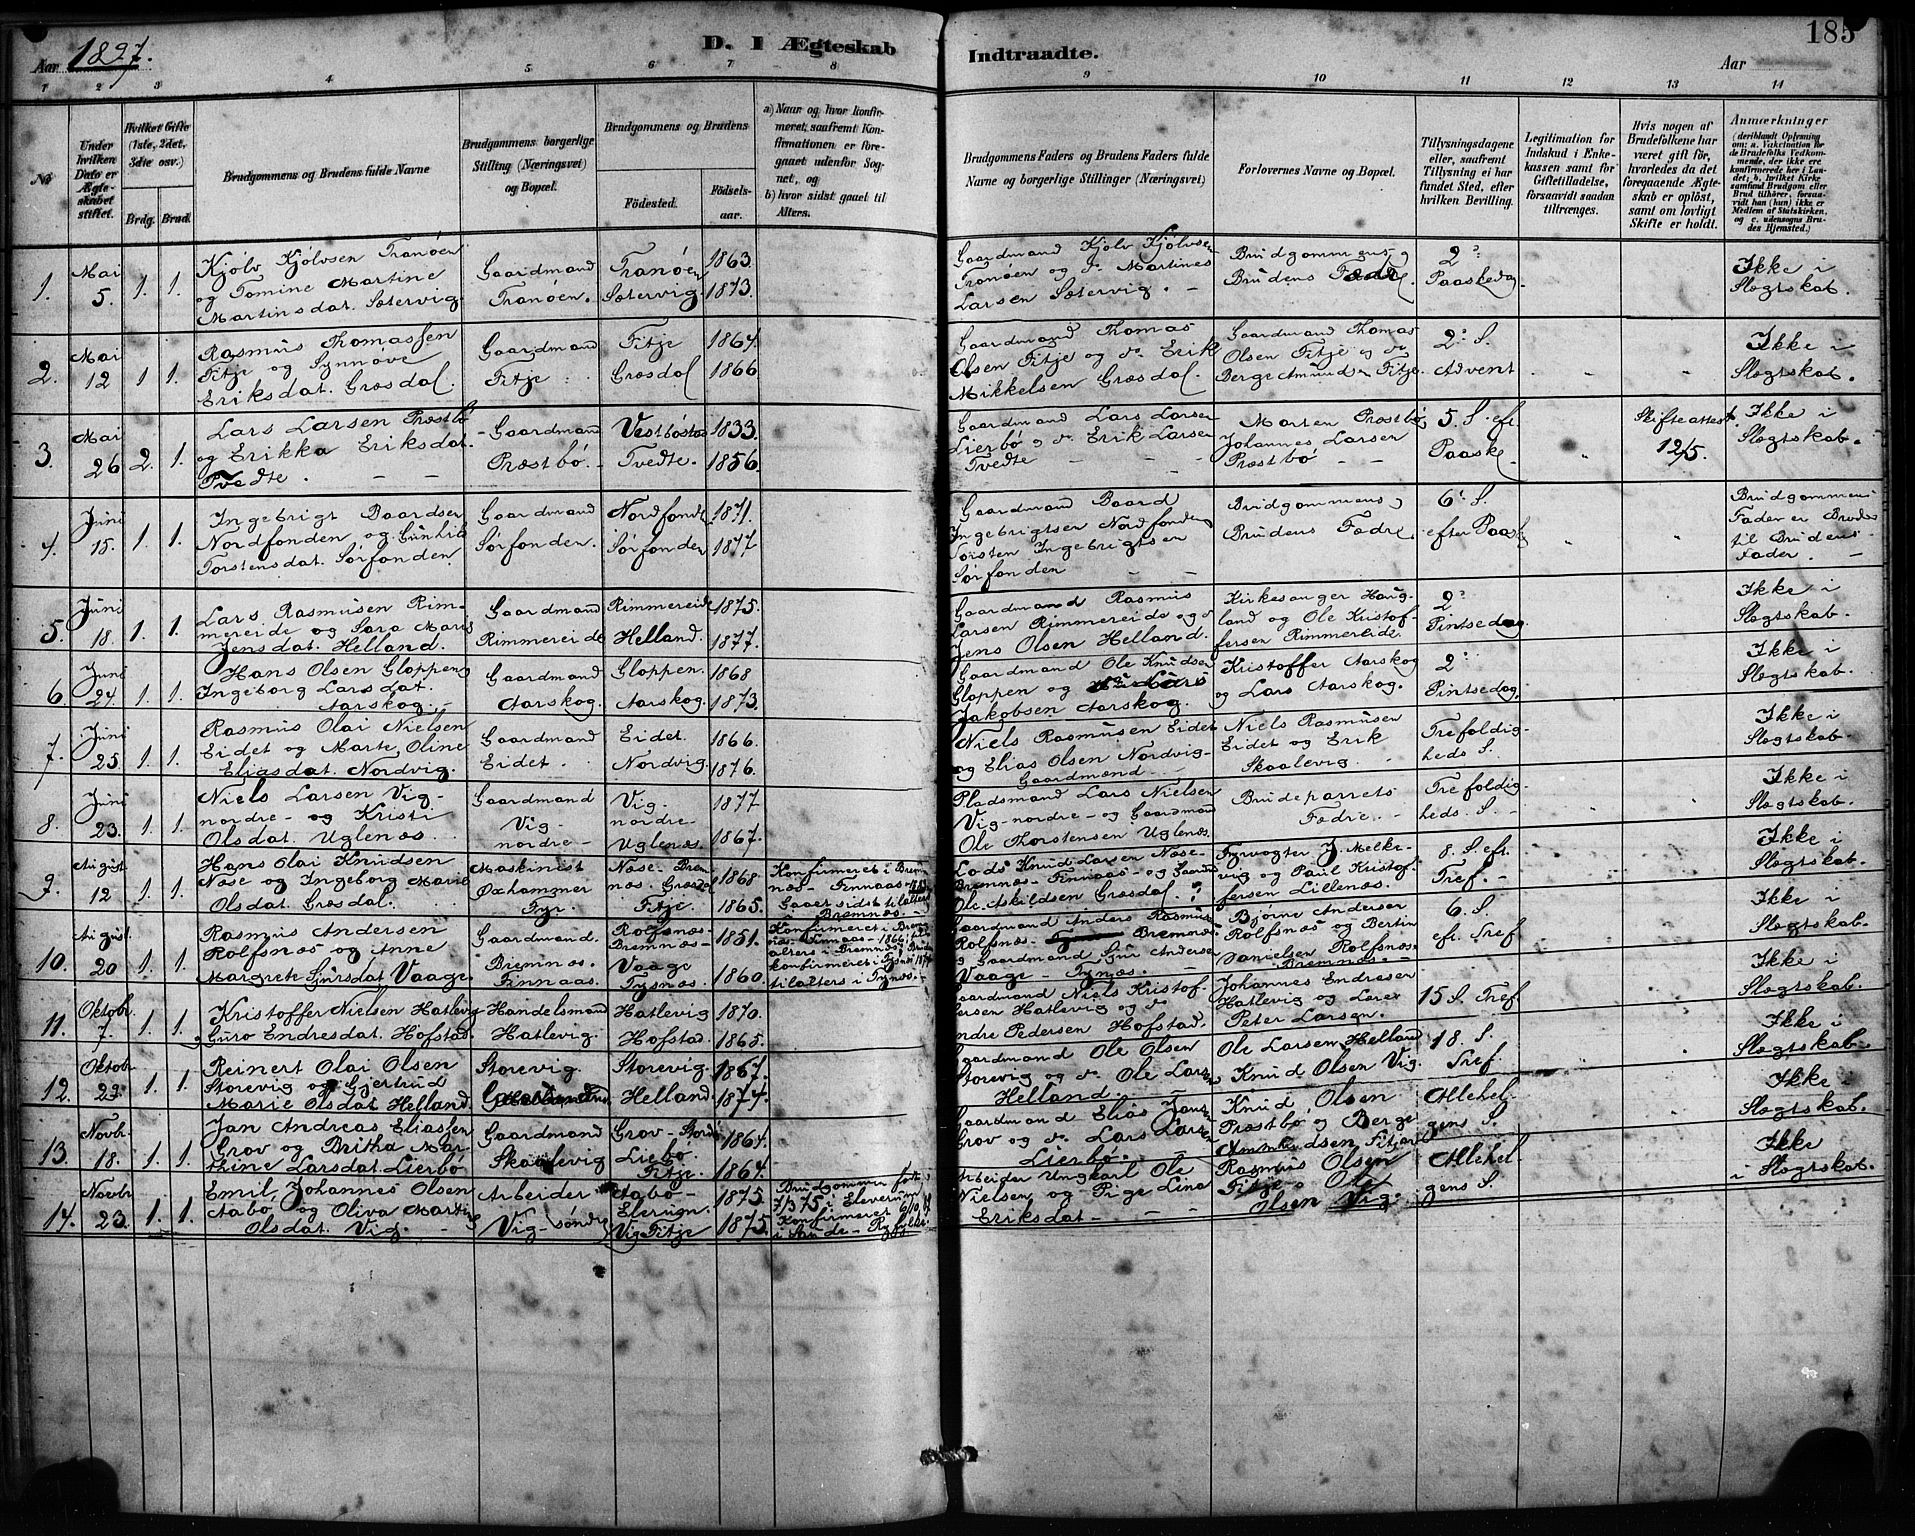 Aar 1897.
D. I Ægteskab Indtraadte.
185
Aar
1 2 3 4 5 6 7 8 9 10 11 12 13 14
No
Under hvilken Dato er Ægteskabet stiftet.
Hvilket Gifte (1ste, 2det, 3die osv.)
Brdg. Brud.
Brudgommens og Brudens fulde Navne
Brudgommens borgerlige Stilling (Næringsvei) og Bopæl.
Brudgommens og Brudens
Fødested.
Fødselsaar.
a) Naar og hvor konfirmeret, saafremt Konfirmationen er foregaaet udenfor Sognet, og
b) hvor sidst gaaet til Alters.
Brudgommens Faders og Brudens Faders fulde Navne og borgerlige Stillinger (Næringsvei)
Forlovernes Navne og Bopæl.
Tillysningsdagene eller, saafremt Tillysning ei har fundet Sted, efter hvilken Bevilling.
Legitimation for Indskud i Enkekassen samt for Giftetilladelse, forsaavidt saadan tiltrænges.
Hvis nogen af Brudefolkene har været gift før, hvorledes da det foregaaende Ægteskab er opløst, samt om lovligt Skifte er holdt.
Anmerkninger
(deriblandt Oplysning om: a. Vakcination for de Brudefolks Vedkommende, der ikke ere konfirmerede her i Landet; b. hvilket Kirkesamfund Brudgom eller Brud tilhører, forsaavidt han (hun) ikke er Medlem af Statskirken, og c. udensogns Brudes Hjemsted.)
1. Mai 5. 1. 1.
Kjølv Kjølvsen Tranøen
og Tomine Martine
Martinsdat. Sætervig.
Gaardmand
Tranøen.
Tranøen 1863.
Sætervig. 1873.
Gaardmand Kjølv Kjølvsen
Tranøen og do Martines
Larsen Sætervig.
Brudgommens og
Brudens Fædre.
2:
Paaskedag
Ikke i
Slægtskab.
2. Mai 12 1. 1.
Rasmus Thomassen
Fitje og Synnøve
Eriksdat. Græsdal.
Gaardmand
Fitje
Fitje 1864
Græsdal 1866
Gaardmand Thomas
Olsen Fitje og do Erik
Mikkelsen Græsdal.
Gaardmand Thomas
Olsen Fitje og do
Berge Amundsen Fitje.
2: S.
Advent
Ikke i
Slægtskab.
3. Mai 26 2. 1.
Lars Larsen Præstbø
og Erikka Eriksdat.
Tvedte.
Gaardmand
Præstbø.
Vestbøstad 1833.
Tvedte. 1856.
Gaardmand Lars Larsen
Lierbø og do Erik Larsen
Tvedte
Morten Præstbø,
Johannes Larsen
Præstbø
5. S. eft.
Paaske
Skifteattest
12/5.
Ikke i
Slægtskab.
4. Juni 15. 1. 1.
Ingebrigt Baardsen
Nordfonden og Gunhild
Torstensdat. Sørfonden
Gaardmand
Sørfonden.
Nordfonden 1871.
Sørfonden 1877
Gaardmand Baard
Ingebrigtsen Nordfonden
Torsten Ingebrigtsen
Sørfonden
Brudgommens og
Brudens Fædre.
6: S.
efter Paaske
Brudgommens
Fader er Broder
til Brudens
Fader.
5. Juni 18. 1. 1.
Lars Rasmusen Rim-
mereide og Sara Marie
Jensdat. Helland.
Gaardmand
Rimmereide
Rimmereide 1875.
Helland. 1877.
Gaardmand Rasmus
Larsen Rimmereide og do
Jens Olsen Helland.
Kirkesanger Haug-
land og Ole Kristof-
fersen Rimmereide.
2:
Pintsedag.
Ikke i
Slægtskab.
6 Juni 24. 1. 1.
Hans Olsen Gloppen
Ingeborg Larsdat.
Aarskog.
Gaardmand
Aarskog.
Gloppen. 1868
Aarskog. 1873.
Gaardmand Ole Knudsen
Gloppen og do Lars
Jakobsen Aarskog.
Kristoffer Aarskog
og Lars Aarskog.
2:
Pintsedag.
Ikke i
Slægtskab.
7. Juni 25 1. 1.
Rasmus Olai Nielsen
Eidet og Marte Oline
Eliasdat. Nordvig.
Gaardmand
Eidet.
Eidet. 1866.
Nordvig. 1876.
Niels Rasmusen Eidet
og Elias Olsen Nordvig
Gaardmænd
Niels Rasmusen
Eidet og Erik
Skaalevig
Trefoldig-
heds S.
Ikke i
Slægtskab.
8. Juni 23. 1. 1.
Niels Larsen Vig-
nordre og Kristi
Olsdat. Uglenæs.
Gaardmand
Vig-
nordre
Vig-
nordre 1877
Uglenæs. 1867.
Pladsmand Lars Nielsen
Vig-nordre og Gaardmand
Ole Thorstensen Uglenæs.
Brudeparrets
Fædre.
Trefoldig-
heds. S.
Ikke i
Slægtskab.
9. August 12 1. 1.
Hans Olai Knudsen
Næse og Ingeborg Marie
Olsdat. Græsdal.
Maskinist
Øxhammer
Fyr.
Næse-Brem-
næs. Græsdal 1868
Fitje. 1865.
Konfirmeret i Brem-
næs-Finnaas
Gaaet sidst til alters
Bremnæs
Lods Knud Larsen Næse
Bremnæs-Finnaas og Gaardm.
Ole Askildsen Græsdal.
Fyrvogter J. Melke-
vig og Paul Kristof-
fersen Lillenæs.
8. S. eft.
Tref.
Ikke i
Slægtskab.
10. August 20 1. 1.
Rasmus Andersen
Rolfsnæs og Anne
Margrete Sjursdat. Vaage
Gaardmand.
Bremnæs.
Finnaas.
Rolfsnæs
Bremnæs 1851.
Vaage
Tysnæs. 1860.
Konfirmeret i Brem-
næs-Finnaas-1866:
alters i Bremnæs. Bruden
konfirmeret i Tysnæs
til alters i Tysnæs.
Gaardmand Anders Rasmusen
Rolfsnæs Bremnæs
og Gaardmand Sjur Andersen
Vaage Tysnæs.
Bjørne Andersen
Rolfsnæs og Bertin
Danielsen Rolfsnæs
Bremnæs.
6. S.
eft. Tref
Ikke i
Slægtskab.
11. Oktobr. 7. 1. 1.
Kristoffer Nielsen Hatlevig
og Guro Endresdat. Hofstad.
Handelsmand
Hatlevig.
Hatlevig 1870.
Hofstad. 1865.
Gaardmand Niels Kristof-
fersen Hatlevig og do
Endre Pedersen Hofstad.
Johannes Endresen
Hatlevig og
Peter Larsen.
15 S. Tref
Ikke i
Slægtskab.
12. Oktob. 23. 1. 1.
Reinert Olai Olsen
Storevig og Gjertrud
Marie Olsdat. Helland.
Storevig.
Gaardmand
Storevig. 1867.
Helland. 1874.
Gaardmand Ole Olsen
Storevig og do Ole Larsen
Helland.
Ole Larsen Helland
Knud Olsen Vig.
18. S.
Tref.
Ikke i
Slægtskab.
13. Novbr. 18. 1. 1.
Jan Andreas Eliassen
Grov og Britha Mar-
thine Larsdat. Lierbø
Gaardmand
Skaalevig
Grov-Stord 1864.
Lierbø.
Fitje. 1864.
Gaardmand Elias Jansen
Grov og do Lars Larsen
Lierbø.
Knud Olsen
Præstbø og Berge
Ammundsen Fitjar
Allehel-
gens S.
Ikke
Slægtskab.
14. Novbr. 23. 1. 1.
Emil Johannes Olsen
Aabø og Oliva Martine
Olsdat. Vig.
Arbeider
Vig-søndre
Aabø-
Elverum. 1875
Vig Fitje 1875.
Brudgommen født
7/3 75 i Elverum
Konfirmeret
i Sande-Ryfylke
Arbeider Ungkarl Ole
Nielsen og Pige Lina
Eriksdat
Rasmus Olsen
Fitje. Ole
Olsen Vig.
Allehel-
gens S.
Ikke
i Slægtskab.